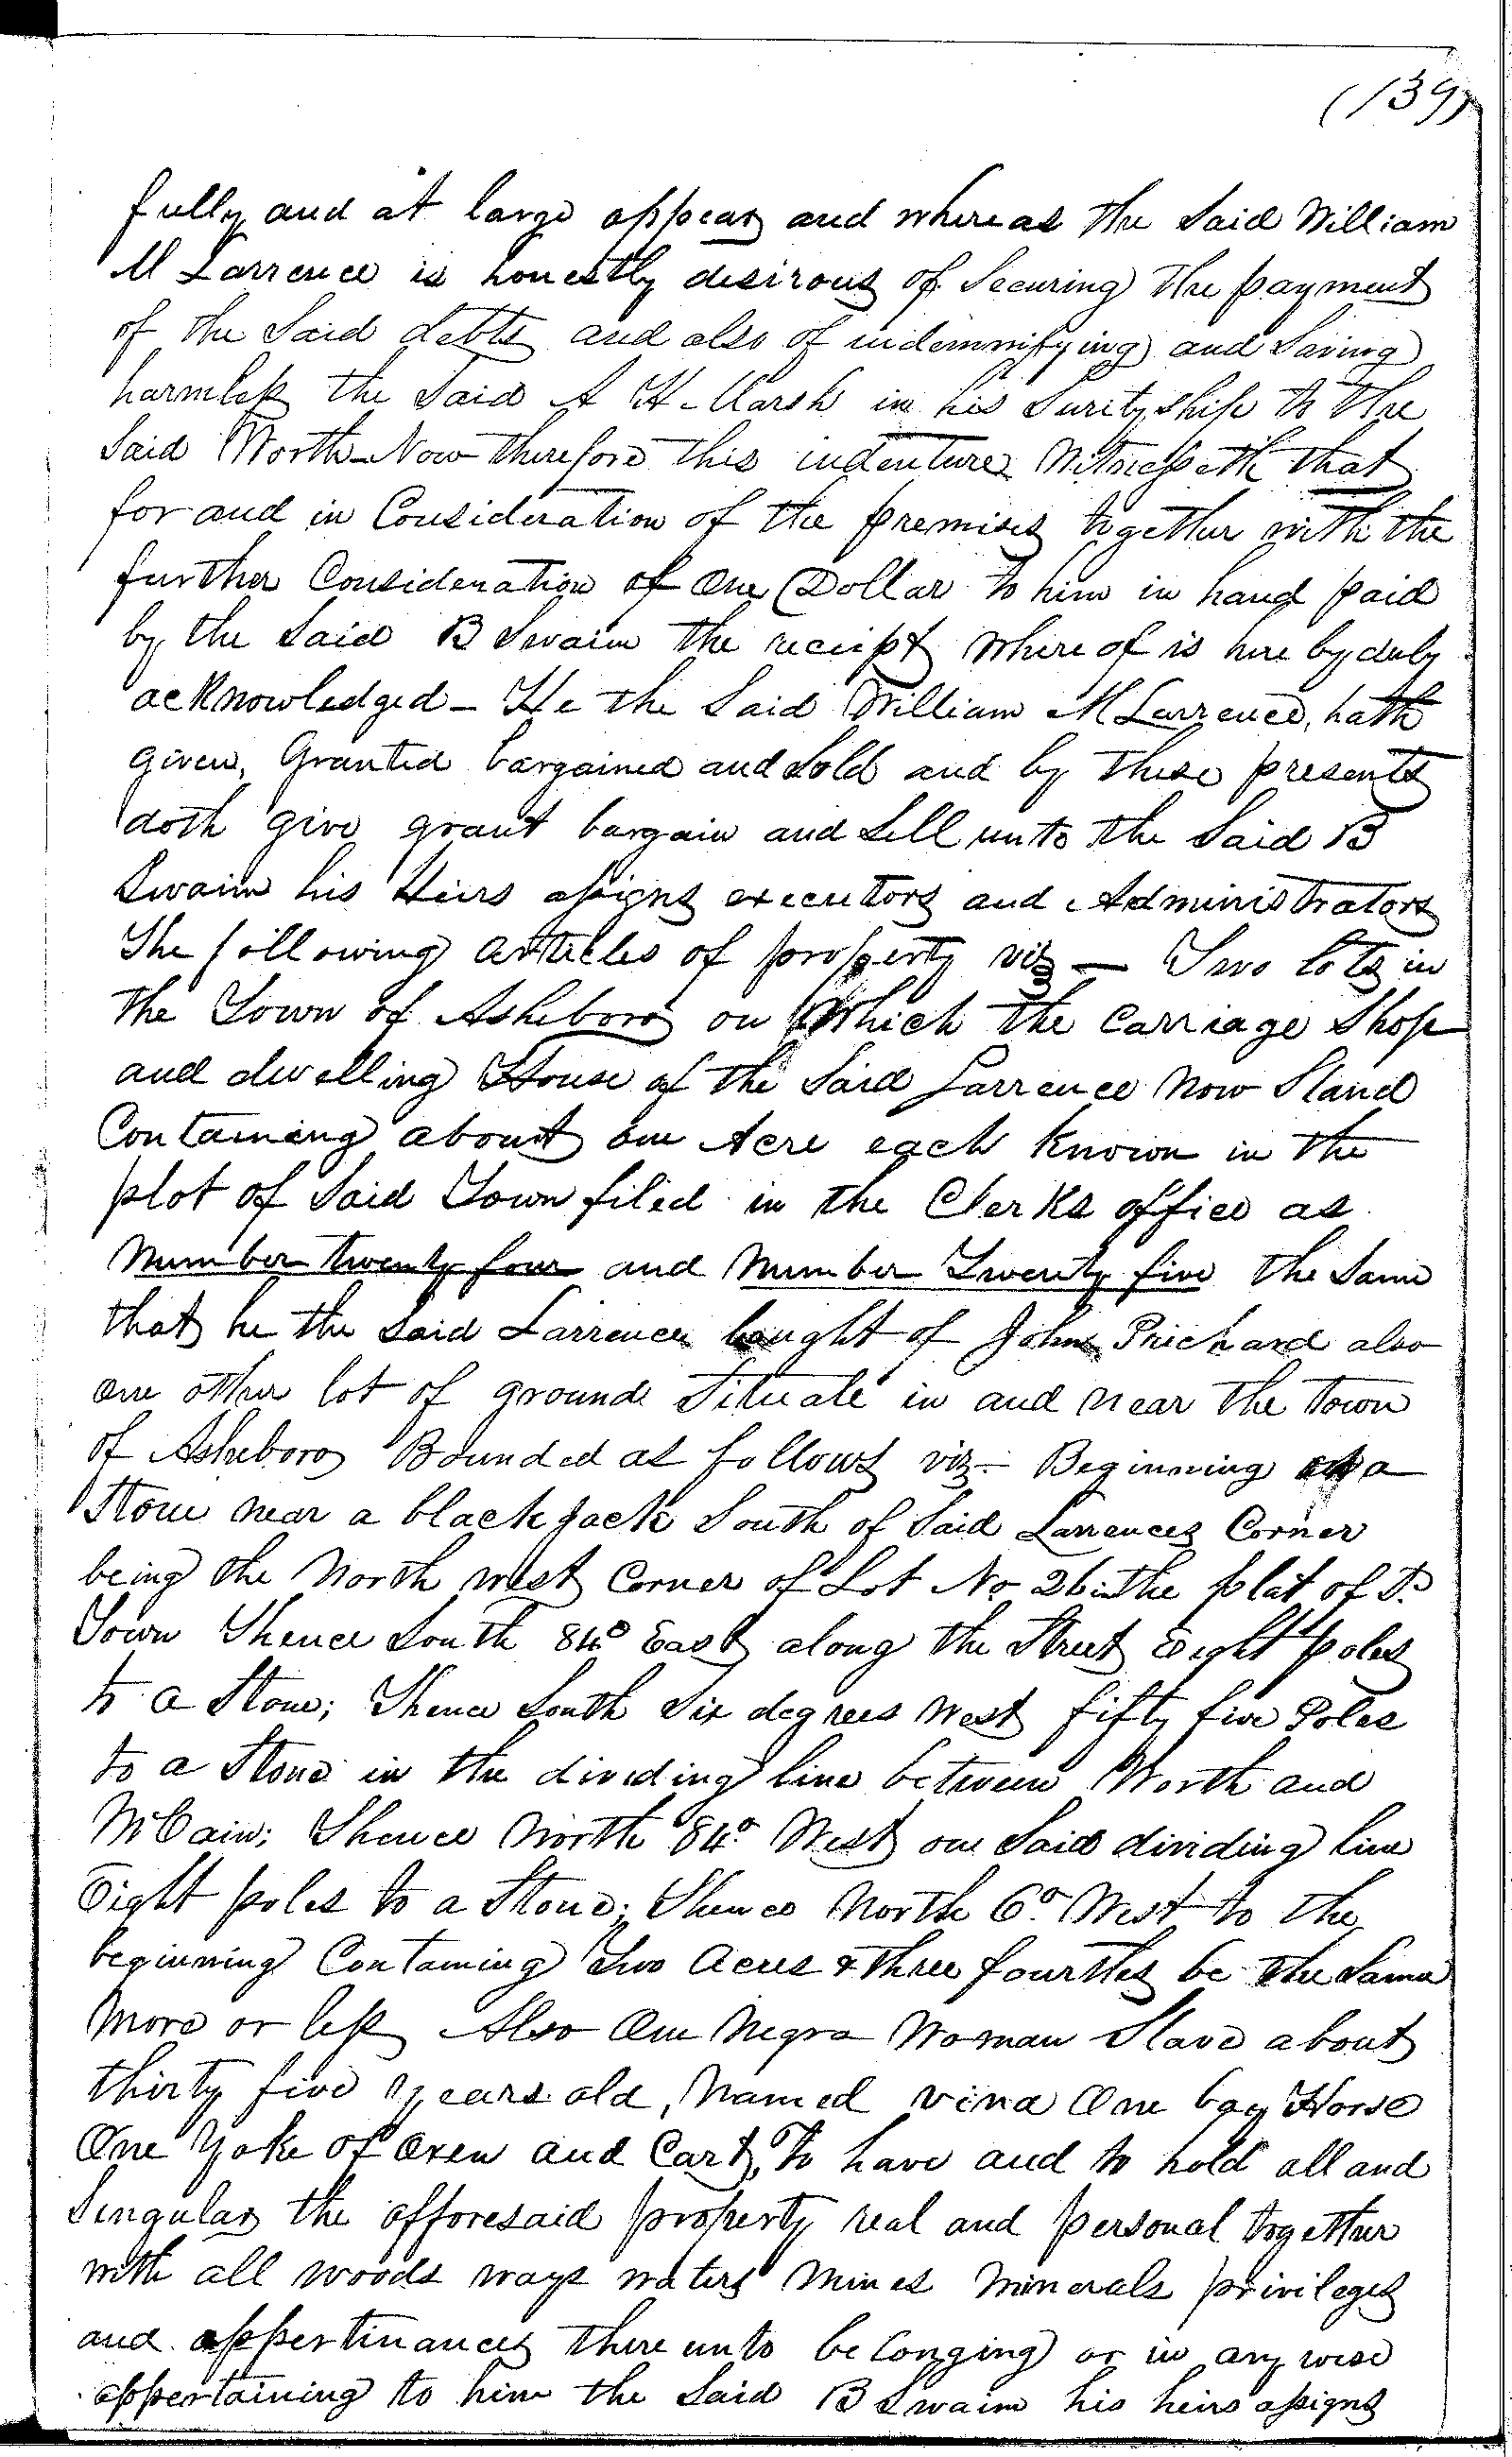 (139)
fully and at large appear and whereas the Said William
M Larrence is honestly desirous of Securing the payment
of the Said debts and also of indemnifying and Saving
harmless the Said A H. Marsh in his Surityship to the
Said Worth - Now therefore this indenture Witnesseth that
for and in Consideration of the premises together with the
further Consideration of One Dollar to him in hand paid
by the Said B Swaim the receipt where of is here by duly
acknowledged - He the Said William M Larrence, hath
given, Granted bargained and Sold and by these presents
doth give grant bargain and Sell unto the Said B
Swaim his Heirs assigns executors and Administrators
The following articles of property viz — Two lots in
the Town of Asheboro on Which the Carriage Shop
and dwelling House of the Said Larrence Now Stand
Containing about one Acre each known in the
plot of Said Town filed in the Clerks office as
Number twenty four and Number Twenty five the Same
that he the Said Larrence bought of John Prichard also
one other lot of ground Situate in and near the town
of Asheboro Bounded as follows viz - Beginning at a
Stone near a black jack South of Said Larrences Corner
being the North west Corner of Lot No. 26 in the plat of Sd.
Town Thence South 84° East along the Street Eight poles
to a Stone; Thence South Six degrees West fifty five Poles
to a Stone in the dividing line between Worth and
McCain; Thence North 84° West on Said dividing line
Eight poles to a Stone; Thence North 6° West to the
beginning Containing Two Acres & three fourthes be the Same
More or less Also One Negro Woman Slave about
thirty five years old, Named Vina One bay Horse
One Yoke of Oxen and Cart, To have and to hold all and
Singular the afforesaid property real and personal together
with all woods ways waters Mines Minerals privileges
and appertinances there unto belonging or in any wise
appertaining to him the Said B Swaim his heirs assigns